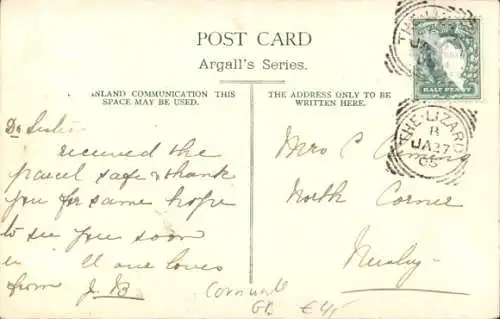 POST CARD
Argall's Series.
INLAND COMMUNICATION THIS
SPACE MAY BE USED.
THE ADDRESS ONLY TO BE
WRITTEN HERE.
HALF PENNY
THE·LIZARD
THE·LIZARD
B
JA 27
05
Dr Sister
received the
parcel safe & thank
you for same hope
to see you soon
all one loves
from J. B
Mrs C
North Corner
Cornwall
GB €4,-